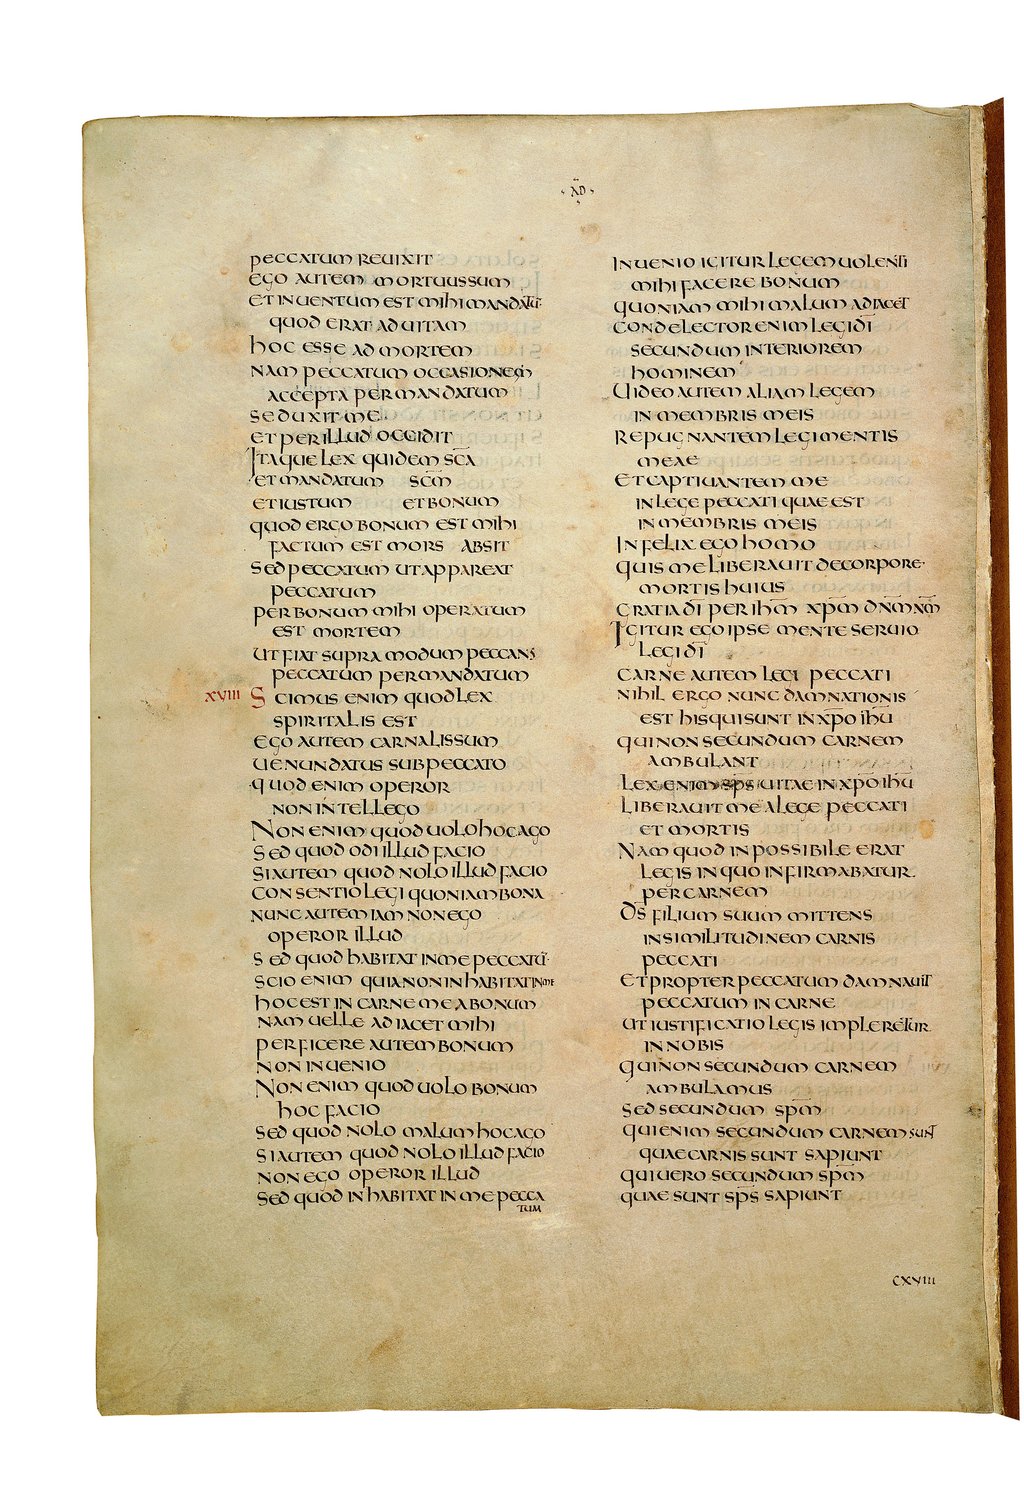 AD
PECCATUM REUIXIT
EGO AUTEM MORTUUSSUM
ET INUENTUM EST MIHI MANDATŪ
QUOD ERAT AD UITAM
HOC ESSE AD MORTEM
NAM PECCATUM OCCASIONEM
ACCEPTA PER MANDATUM
SEDUXIT ME
ET PER ILLUD OCCIDIT
ITAQUE LEX QUIDEM SC̄A
ET MANDATUM SC̄M
ET IUSTUM ET BONUM
QUOD ERGO BONUM EST MIHI
FACTUM EST MORS ABSIT
SED PECCATUM UT APPAREAT
PECCATUM
PER BONUM MIHI OPERATUM
EST MORTEM
UT FIAT SUPRA MODUM PECCANS
PECCATUM PER MANDATUM
XVIII SCIMUS ENIM QUOD LEX
SPIRITALIS EST
EGO AUTEM CARNALISSUM
UENUNDATUS SUB PECCATO
QUOD ENIM OPEROR
NON INTELLEGO
NON ENIM QUOD UOLO HOC AGO
SED QUOD ODI ILLUD FACIO
SI AUTEM QUOD NOLO ILLUD FACIO
CONSENTIO LEGI QUONIAM BONA
NUNC AUTEM IAM NON EGO
OPEROR ILLUD
SED QUOD HABITAT IN ME PECCATŪ
SCIO ENIM QUIA NON INHABITAT IN ME
HOC EST IN CARNE MEA BONUM
NAM UELLE ADIACET MIHI
PERFICERE AUTEM BONUM
NON INUENIO
NON ENIM QUOD UOLO BONUM
HOC FACIO
SED QUOD NOLO MALUM HOC AGO
SI AUTEM QUOD NOLO ILLUD FACIO
NON EGO OPEROR ILLUD
SED QUOD INHABITAT IN ME PECCA
TUM
INUENIO IGITUR LEGEM UOLENTI
MIHI FACERE BONUM
QUONIAM MIHI MALUM ADIACET
CONDELECTOR ENIM LEGI DĪ
SECUNDUM INTERIOREM
HOMINEM
UIDEO AUTEM ALIAM LEGEM
IN MEMBRIS MEIS
REPUGNANTEM LEGI MENTIS
MEAE
ET CAPTIUANTEM ME
IN LEGE PECCATI QUAE EST
IN MEMBRIS MEIS
INFELIX EGO HOMO
QUIS ME LIBERAUIT DE CORPORE
MORTIS HUIUS
GRATIA DĪ PER IHM̄ XPM̄ DNM̄ NM̄
IGITUR EGO IPSE MENTE SERUIO
LEGI DĪ
CARNE AUTEM LEGI PECCATI
NIHIL ERGO NUNC DAMNATIONIS
EST HIS QUI SUNT IN XPŌ IHŪ
QUI NON SECUNDUM CARNEM
AMBULANT
LEX ENIM SPS̄ UITAE IN XPŌ IHŪ
LIBERAUIT ME A LEGE PECCATI
ET MORTIS
NAM QUOD INPOSSIBILE ERAT
LEGIS IN QUO INFIRMABATUR
PER CARNEM
DS̄ FILIUM SUUM MITTENS
IN SIMILITUDINEM CARNIS
PECCATI
ET PROPTER PECCATUM DAMNAUIT
PECCATUM IN CARNE
UT IUSTIFICATIO LEGIS IMPLERETUR
IN NOBIS
QUI NON SECUNDUM CARNEM
AMBULAMUS
SED SECUNDUM SPM̄
QUI ENIM SECUNDUM CARNEM SUNT
QUAE CARNIS SUNT SAPIUNT
QUI UERO SECUNDUM SPM̄
QUAE SUNT SPS̄ SAPIUNT
CXVIII